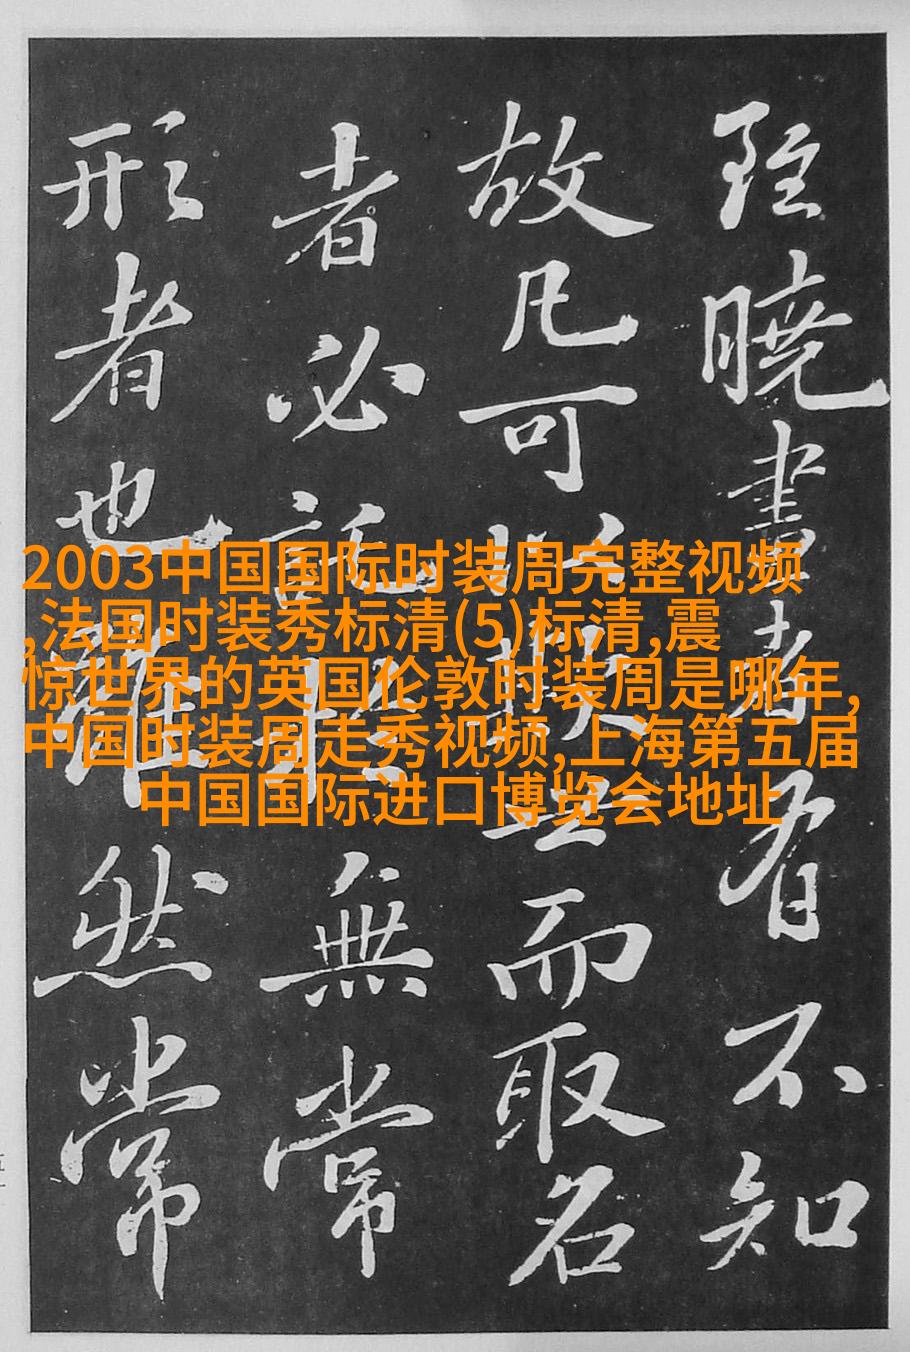 雖曉畫者有不知
故凡可以欺世而取名
者必託於無常
形者也雖然常
2003中国国际时装周完整视频
,法国时装秀标清(5)标清,震
惊世界的英国伦敦时装周是哪年,
中国时装周走秀视频,上海第五届
中国国际进口博览会地址